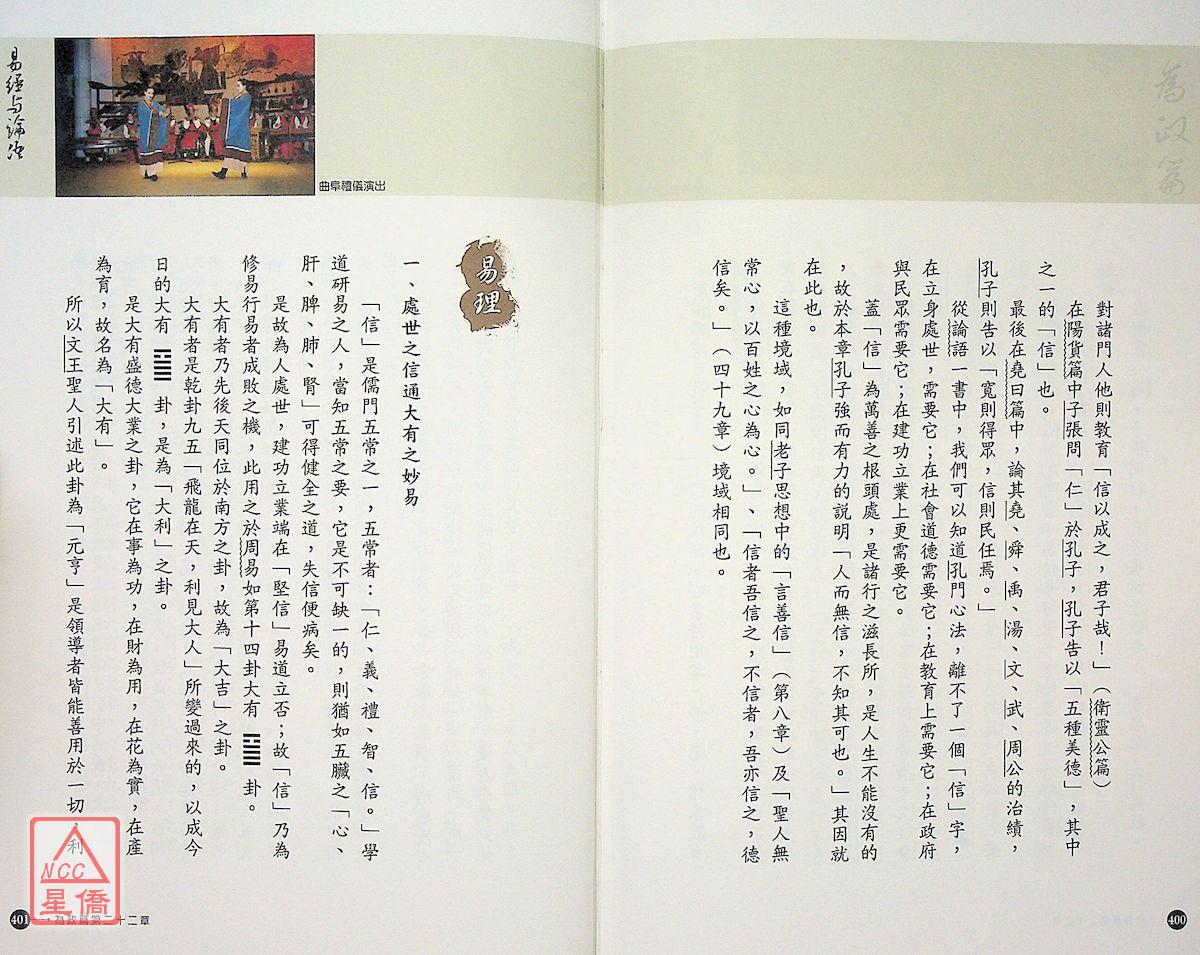 為政篇
對諸門人他則教育「信以成之，君子哉！」（衛靈公篇）
在陽貨篇中子張問「仁」於孔子，孔子告以「五種美德」，其中
之一的「信」也。
最後在堯曰篇中，論其堯、舜、禹、湯、文、武、周公的治績，
孔子則告以「寬則得眾，信則民任焉。」
從論語一書中，我們可以知道孔門心法，離不了一個「信」字，
在立身處世，需要它；在社會道德需要它；在教育上需要它；在政府
與民眾需要它；在建功立業上更需要它。
蓋「信」為萬善之根頭處，是諸行之滋長所，是人生不能沒有的
，故於本章孔子強而有力的說明「人而無信，不知其可也。」其因就
在此也。
這種境域，如同老子思想中的「言善信」（第八章）及「聖人無
常心，以百姓之心為心。」、「信者吾信之，不信者，吾亦信之，德
信矣。」（四十九章）境域相同也。
400
易理
一、處世之信通大有之妙易
「信」是儒門五常之一，五常者：「仁、義、禮、智、信。」學
道研易之人，當知五常之要，它是不可缺一的，則猶如五臟之「心、
肝、脾、肺、腎」可得健全之道，失信便病矣。
是故為人處世，建功立業端在「堅信」易道立否；故「信」乃為
修易行易者成敗之機，此用之於周易如第十四卦大有䷍卦。
大有者乃先後天同位於南方之卦，故為「大吉」之卦。
大有者是乾卦九五「飛龍在天，利見大人」所變過來的，以成今
日的大有䷍卦，是為「大利」之卦。
是大有盛德大業之卦，它在事為功，在財為用，在花為實，在產
為育，故名為「大有」。
所以文王聖人引述此卦為「元亨」是領導者皆能善用於一切，利
曲阜禮儀演出
易經与論語
401
為政篇第二十二章
NCC
星僑